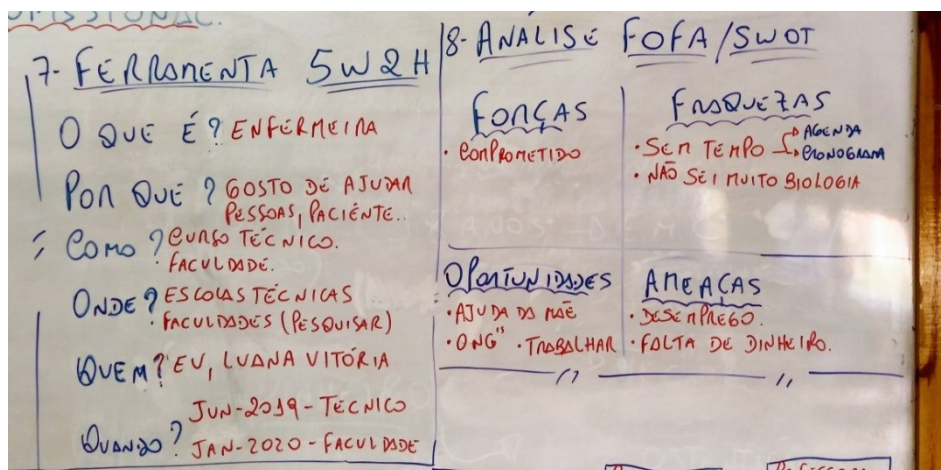 7- FERRAMENTA 5W2H
O QUE É? ENFERMEIRA
POR QUE? GOSTO DE AJUDAR
PESSOAS, PACIÊNTE..
COMO? CURSO TÉCNICO.
FACULDADE.
ONDE? ESCOLAS TÉCNICAS
· FACULDADES (PESQUISAR)
QUEM? EU, LUANA VITÓRIA
JUN-2019 - TÉCNICO
QUANDO? JAN-2020 - FACULDADE
8- ANALISE FOFA/SWOT
FORÇAS
· COMPROMETIDO
FRAQUEZAS
· SEM TEMPO AGENDA
CRONOGRAMA
· NÃO SEI MUITO BIOLOGIA
OPORTUNIDADES
· AJUDA DA MÃE
· ONG" · TRABALHAR
AMEAÇAS
· DESEMPREGO.
· FALTA DE DINHEIRO.